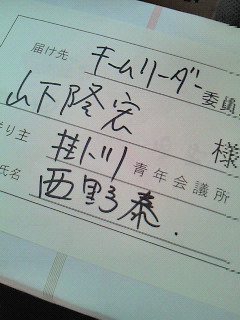 届け先 キームリーダー 委員
山下隆宏 様
送り主 掛川 青年会議所
氏名 西野泰